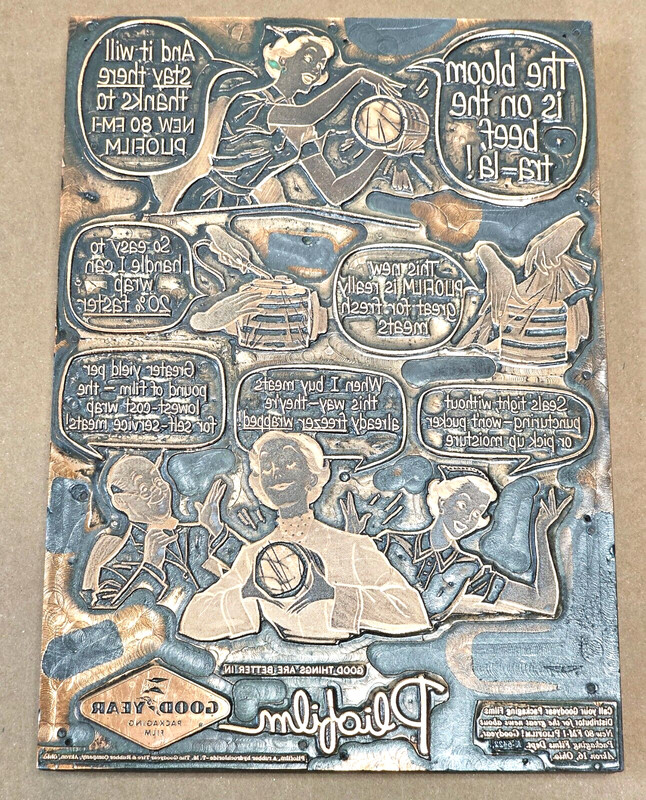 The bloom
is on the
beef,
tra-la!
And it will
stay there
thanks to
NEW 80 FM-1
PLIOFILM
This new
PLIOFILM is really
great for fresh
meats
So easy to
handle I can
wrap
20% faster
Seals tight without
puncturing-wont pucker
or pick up moisture
When I buy meats
this way—they're
already freezer wrapped!
Greater yield per
pound of film — the
lowest cost wrap
for self-service meats!
GOOD THINGS ARE BETTER IN
Pliofilm
Call your Goodyear Packaging Films
Distributor for the great news about
New 80 FM-1 PLIOFILM! Goodyear,
Packaging Films Dept.
Akron 16, Ohio
GOODYEAR
PACKAGING
FILM
Pliofilm, A rubber hydrochloride—T. M. The Goodyear Tire & Rubber Company, Akron, Ohio